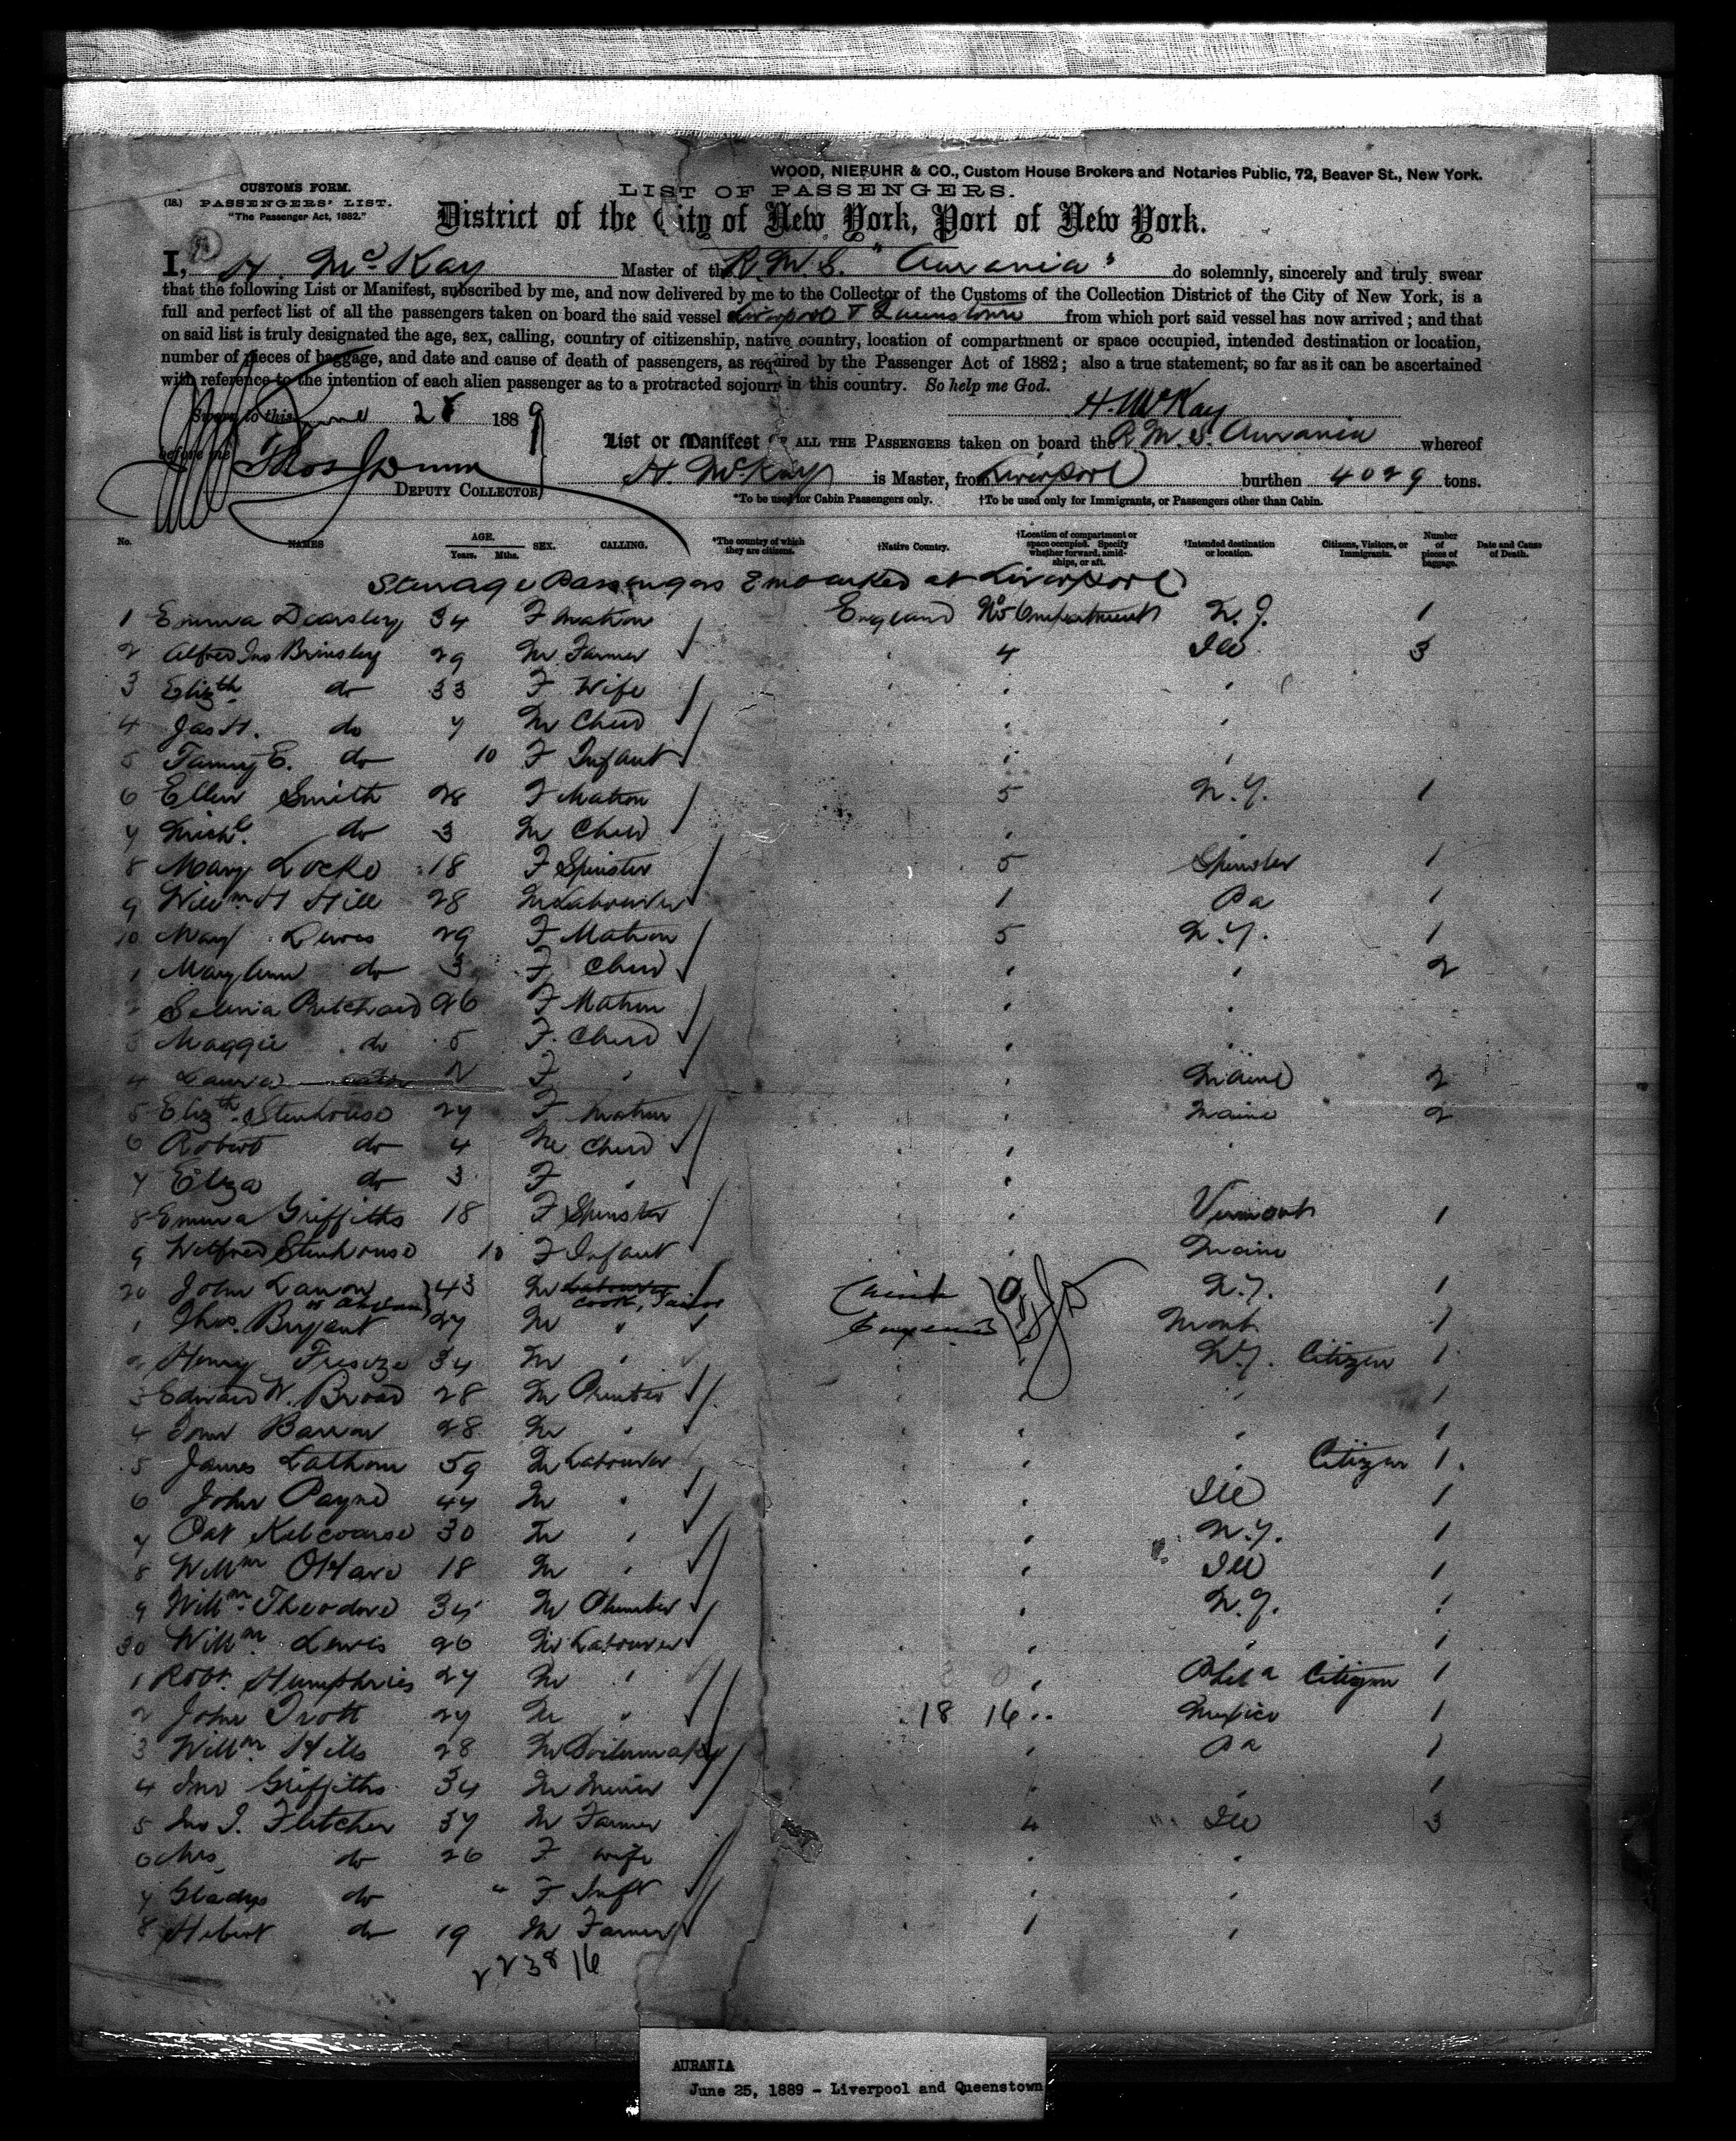 WOOD, NIEBUHR & CO., Custom House Brokers and Notaries Public, 72, Beaver St., New York.
CUSTOMS FORM.
(18.) PASSENGERS' LIST.
"The Passenger Act, 1882."
LIST OF PASSENGERS.
District of the City of New York, Port of New York.
I, H. McKay Master of the R.M.S. "Aurania" do solemnly, sincerely and truly swear
that the following List or Manifest, subscribed by me, and now delivered by me to the Collector of the Customs of the Collection District of the City of New York, is a
full and perfect list of all the passengers taken on board the said vessel Liverpool & Queenstown from which port said vessel has now arrived; and that
on said list is truly designated the age, sex, calling, country of citizenship, native country, location of compartment or space occupied, intended destination or location,
number of pieces of baggage, and date and cause of death of passengers, as required by the Passenger Act of 1882; also a true statement, so far as it can be ascertained
with reference to the intention of each alien passenger as to a protracted sojourn in this country. So help me God.
Sworn to this June 25 1889
H. McKay
before me
List or Manifest OF ALL THE PASSENGERS taken on board the R.M.S. Aurania whereof
DEPUTY COLLECTOR
H. McKay is Master, from Liverpool burthen 4029 tons.
*To be used for Cabin Passengers only. †To be used only for Immigrants, or Passengers other than Cabin.
No. NAMES AGE. Years. Mths. SEX. CALLING. *The country of which they are citizens. †Native Country. †Location of compartment or space occupied. Specify whether forward, amidships, or aft. †Intended destination or location. Citizens, Visitors, or Immigrants. Number of pieces of baggage. Date and Cause of Death.
Steerage Passengers Embarked at Liverpool
1 Emma Dearsley 34 F Matron England No Compartment N.J. 1
2 Alfred Jno Brinsley 29 M Farmer 4 Ill 3
3 Elizth do 33 F Wife
4 Jas H. do 7 M Child
5 Fanny E. do 10 F Infant
6 Ellen Smith 28 F Matron 5 N.Y. 1
7 Michl do 3 M Child
8 Mary Locke 18 F Spinster 5 Spinster 1
9 Willm H Hill 28 M Labourer 1 Pa 1
10 Mary Lewis 29 F Matron 5 N.Y. 1
1 Mary Ann do 3 F Child 2
2 Selina Pritchard 26 F Matron
3 Maggie do 5 F Child
4 Laura 2 F Maine 2
5 Elizth Stenhouse 27 F Matron Maine 2
6 Robert do 4 M Child
7 Eliza do 3 F
8 Emma Griffiths 18 F Spinster Vermont 1
9 Wilfred Stenhouse 10 F Infant Maine
20 John Lawon 43 M Labourer Cook, Tailor N.Y. 1
1 Thos. Bryant 27 M Mont 1
2 Henry 34 M N.Y. Citizen 1
3 Edward W. Broad 28 M 1
4 John Barron 28 M 1
5 James Lathom 59 M Labourer Citizen 1
6 John Payne 44 M Ill 1
7 Pat 30 M N.Y. 1
8 Willm O'Hare 18 M Ill 1
9 Willm Theodore 35 M Plumber N.Y. 1
30 Willm Lewis 26 M Labourer 1
1 Robt. Humphries 27 M Phila Citizen 1
2 John Trott 27 M 18 16 Mexico 1
3 Willm Hills 28 M Boilermaker Pa 1
4 Jno Griffiths 34 M Miner 1
5 Jno J. Fletcher 37 M Farmer 4 Ill 3
6 Mrs do 26 F Wife
7 Gladys do F Inft
8 Hebert do 19 M Farmer 1
22 38 16
AURANIA
June 25, 1889 - Liverpool and Queenstown